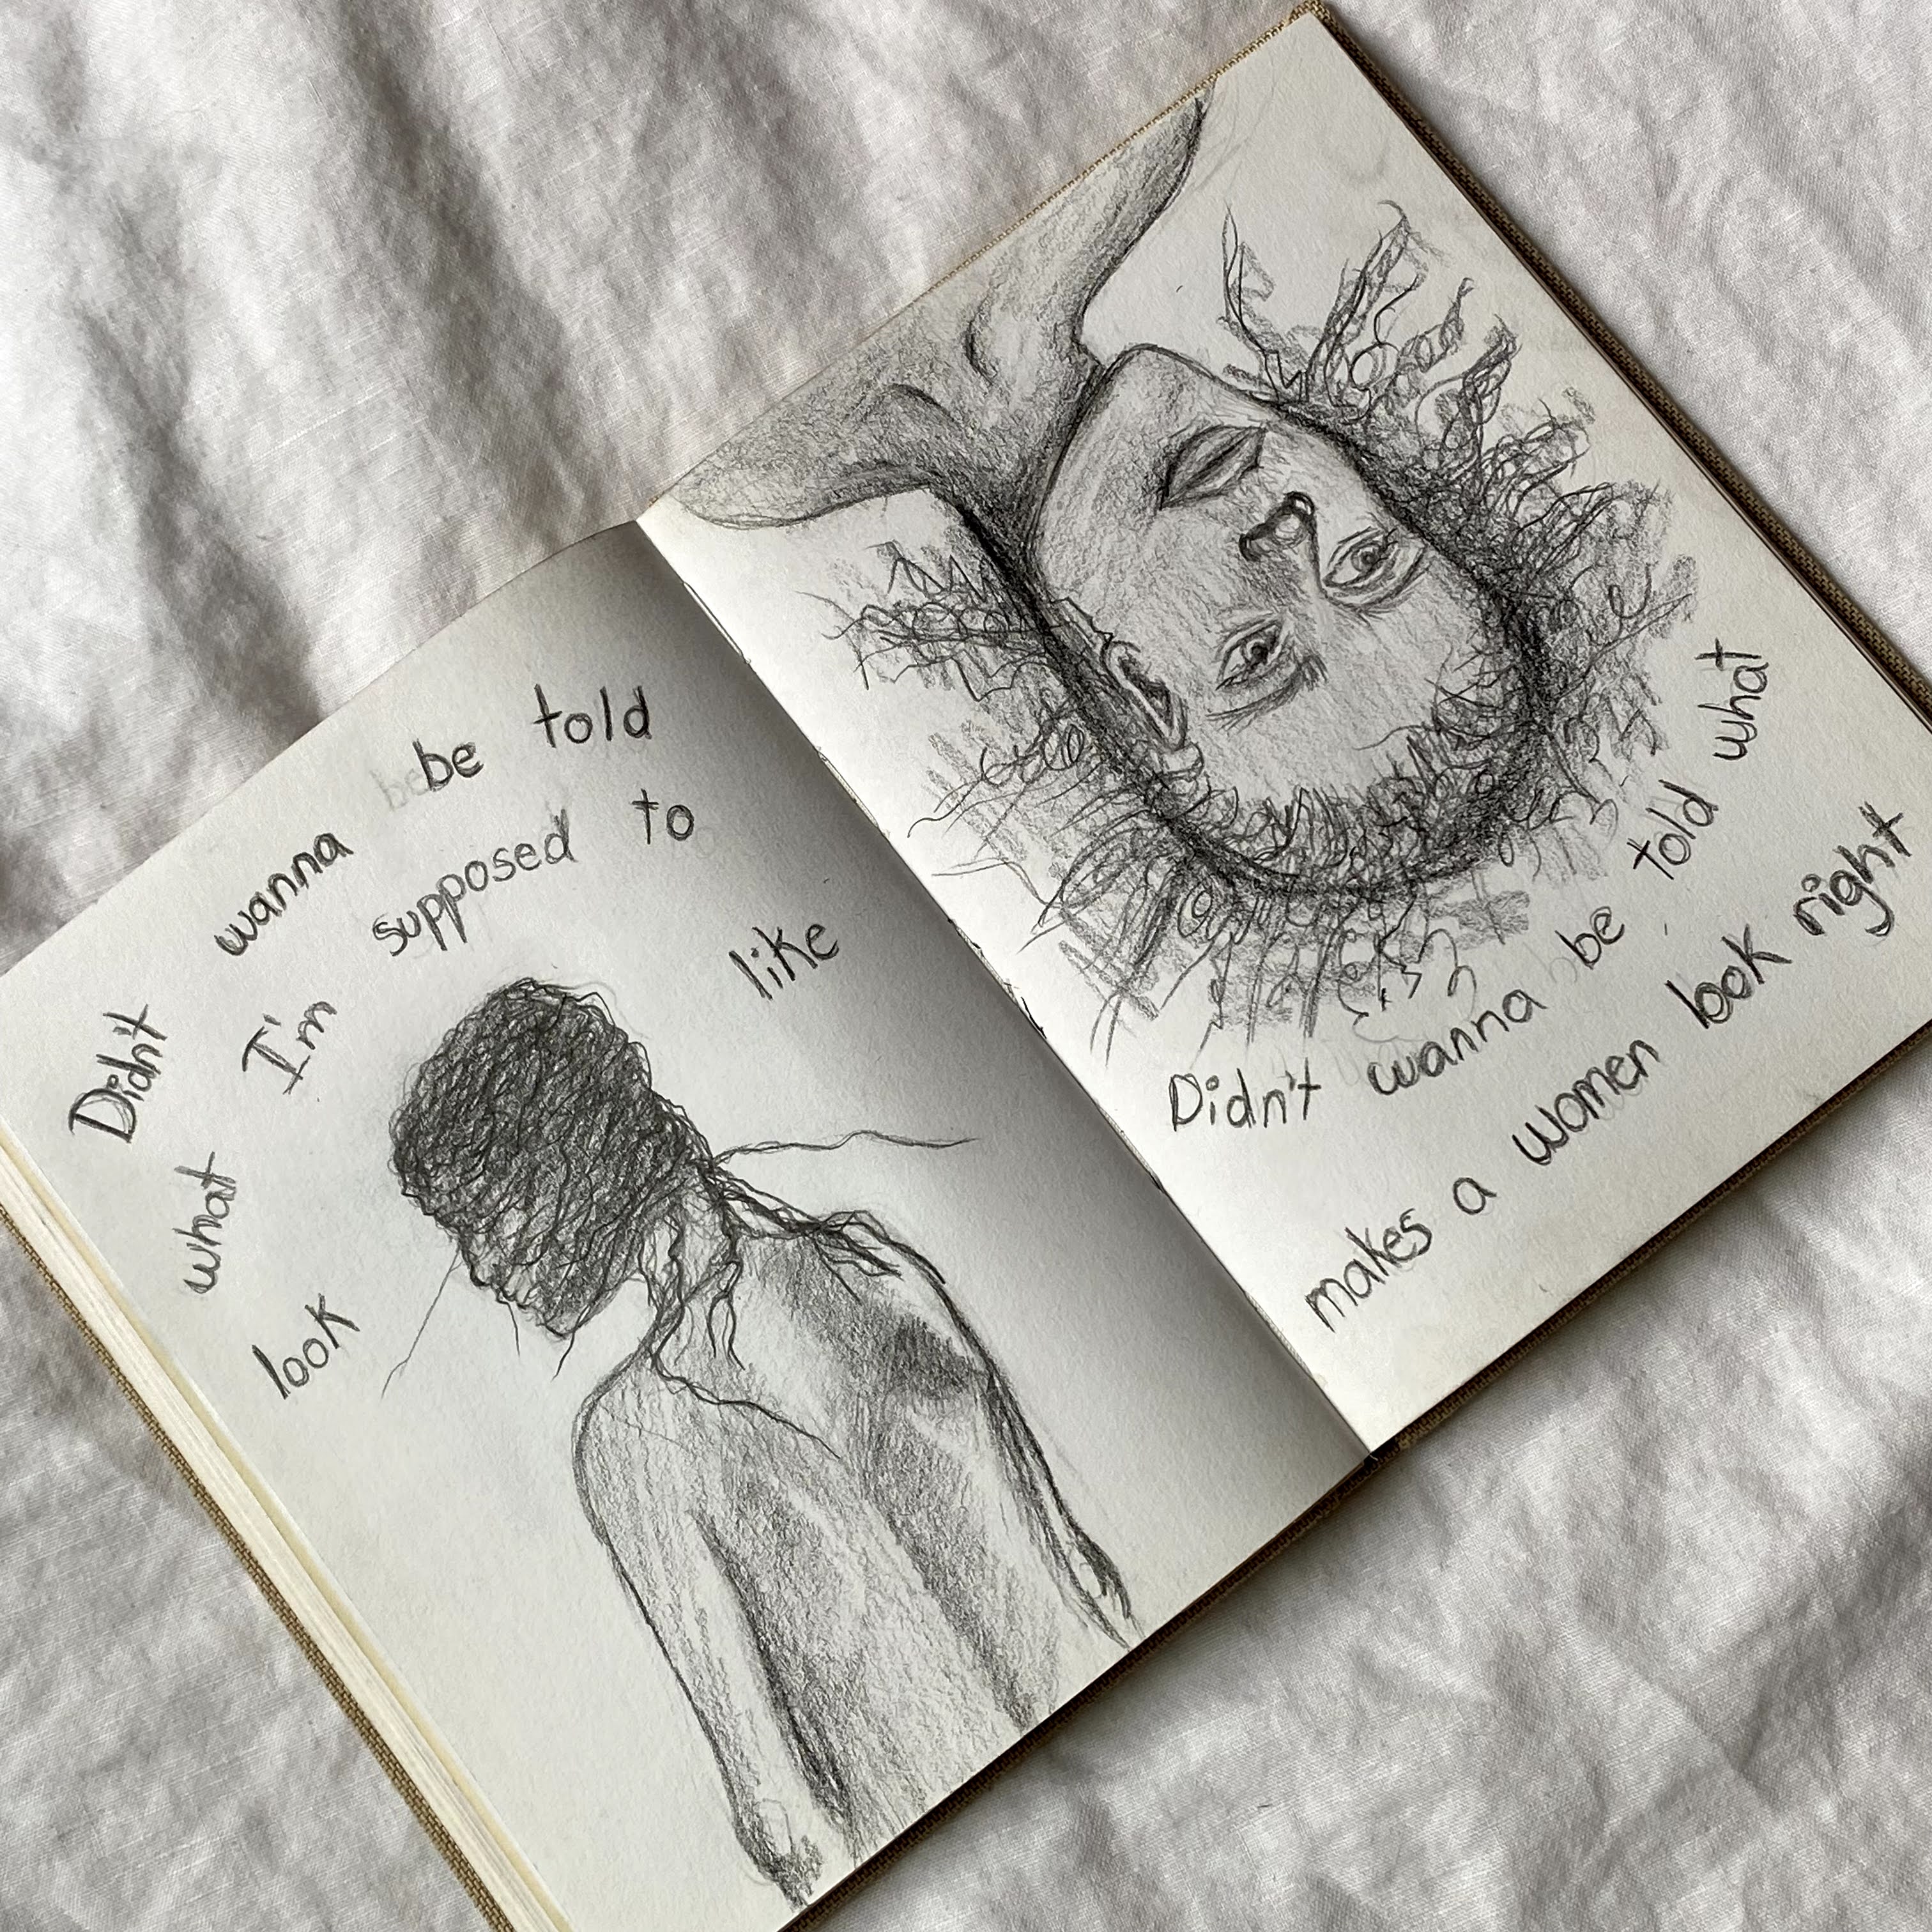 Didn't wanna be told
what I'm supposed to
look like
Didn't wanna be told what
makes a women look right